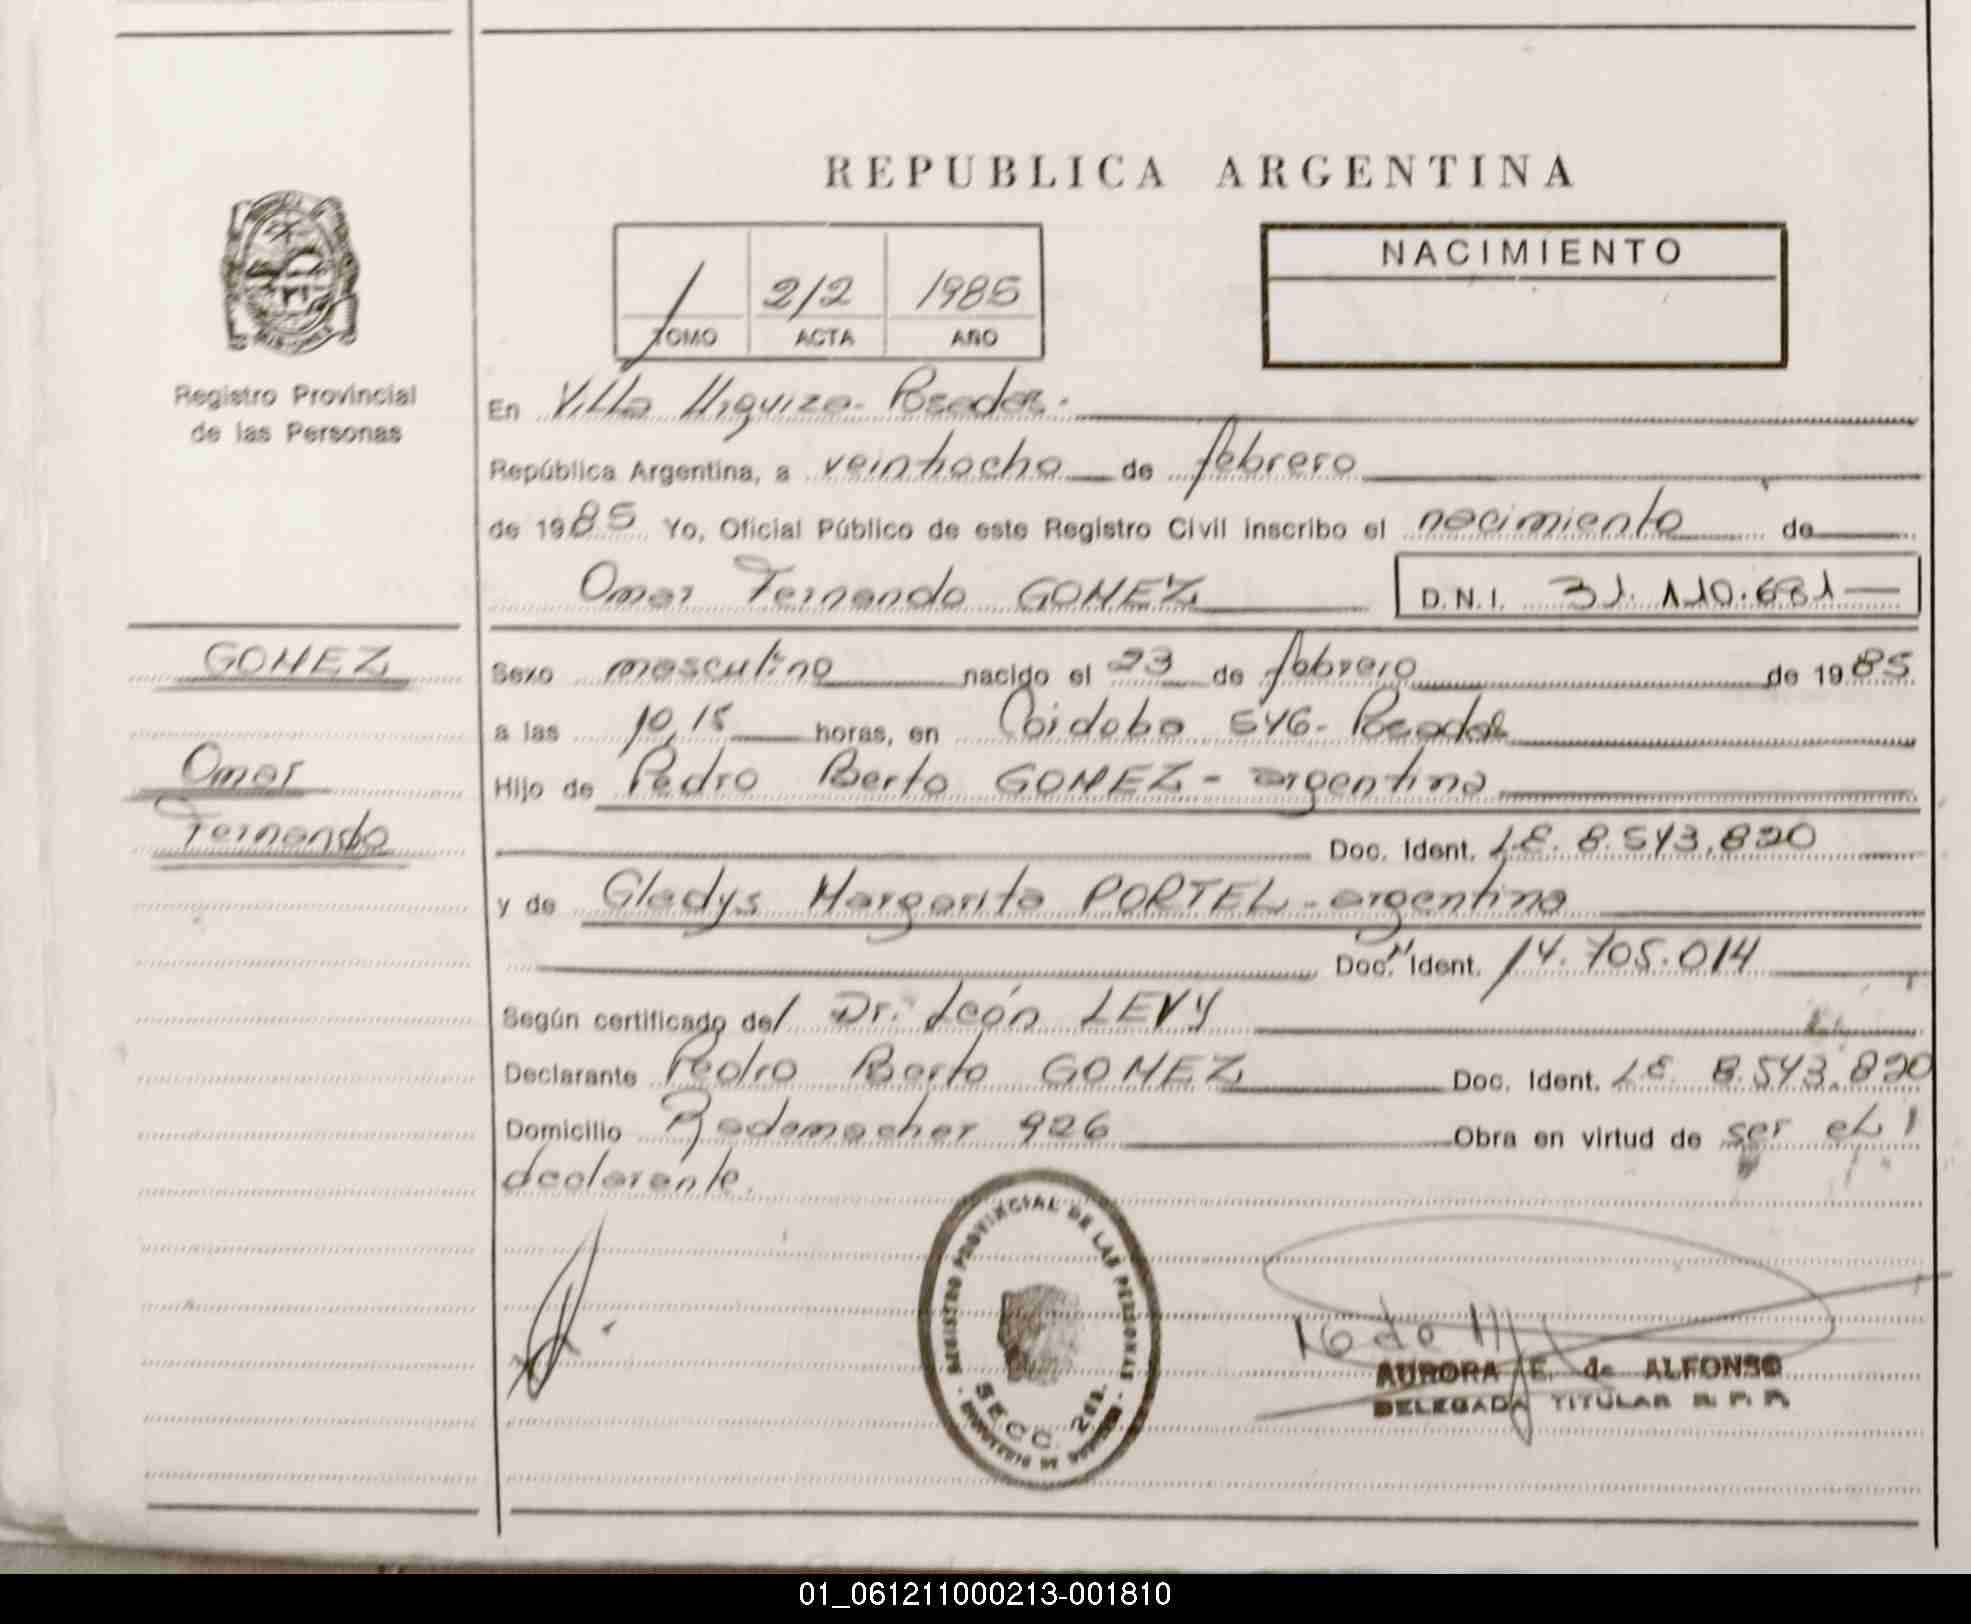 REPUBLICA ARGENTINA
NACIMIENTO
/ 212 1985
TOMO ACTA AÑO
Registro Provincial
de las Personas
En Villa Urquiza - Posadas -
República Argentina, a veintiocho de febrero
de 1985 Yo, Oficial Público de este Registro Civil inscribo el nacimiento de
Omar Fernando GOMEZ D.N.I. 31.110.681
GOMEZ
Omar
Fernando
Sexo masculino nacido el 23 de febrero de 1985
a las 10,15 horas, en Córdoba 546 - Posadas
Hijo de Pedro Berto GOMEZ - argentina
Doc. Ident. L.E. 8.543.820
y de Gladys Margarita PORTEL - argentina
Doc. Ident. 14.705.014
Según certificado del Dr. León LEVY
Declarante Pedro Berto GOMEZ Doc. Ident. L.E. 8.543.820
Domicilio Rademacher 926 Obra en virtud de ser el
declarante.
REGISTRO PROVINCIAL DE LAS PERSONAS
SECC. 2da.
AURORA E. de ALFONSO
DELEGADA TITULAR R. P. P.
01_061211000213-001810